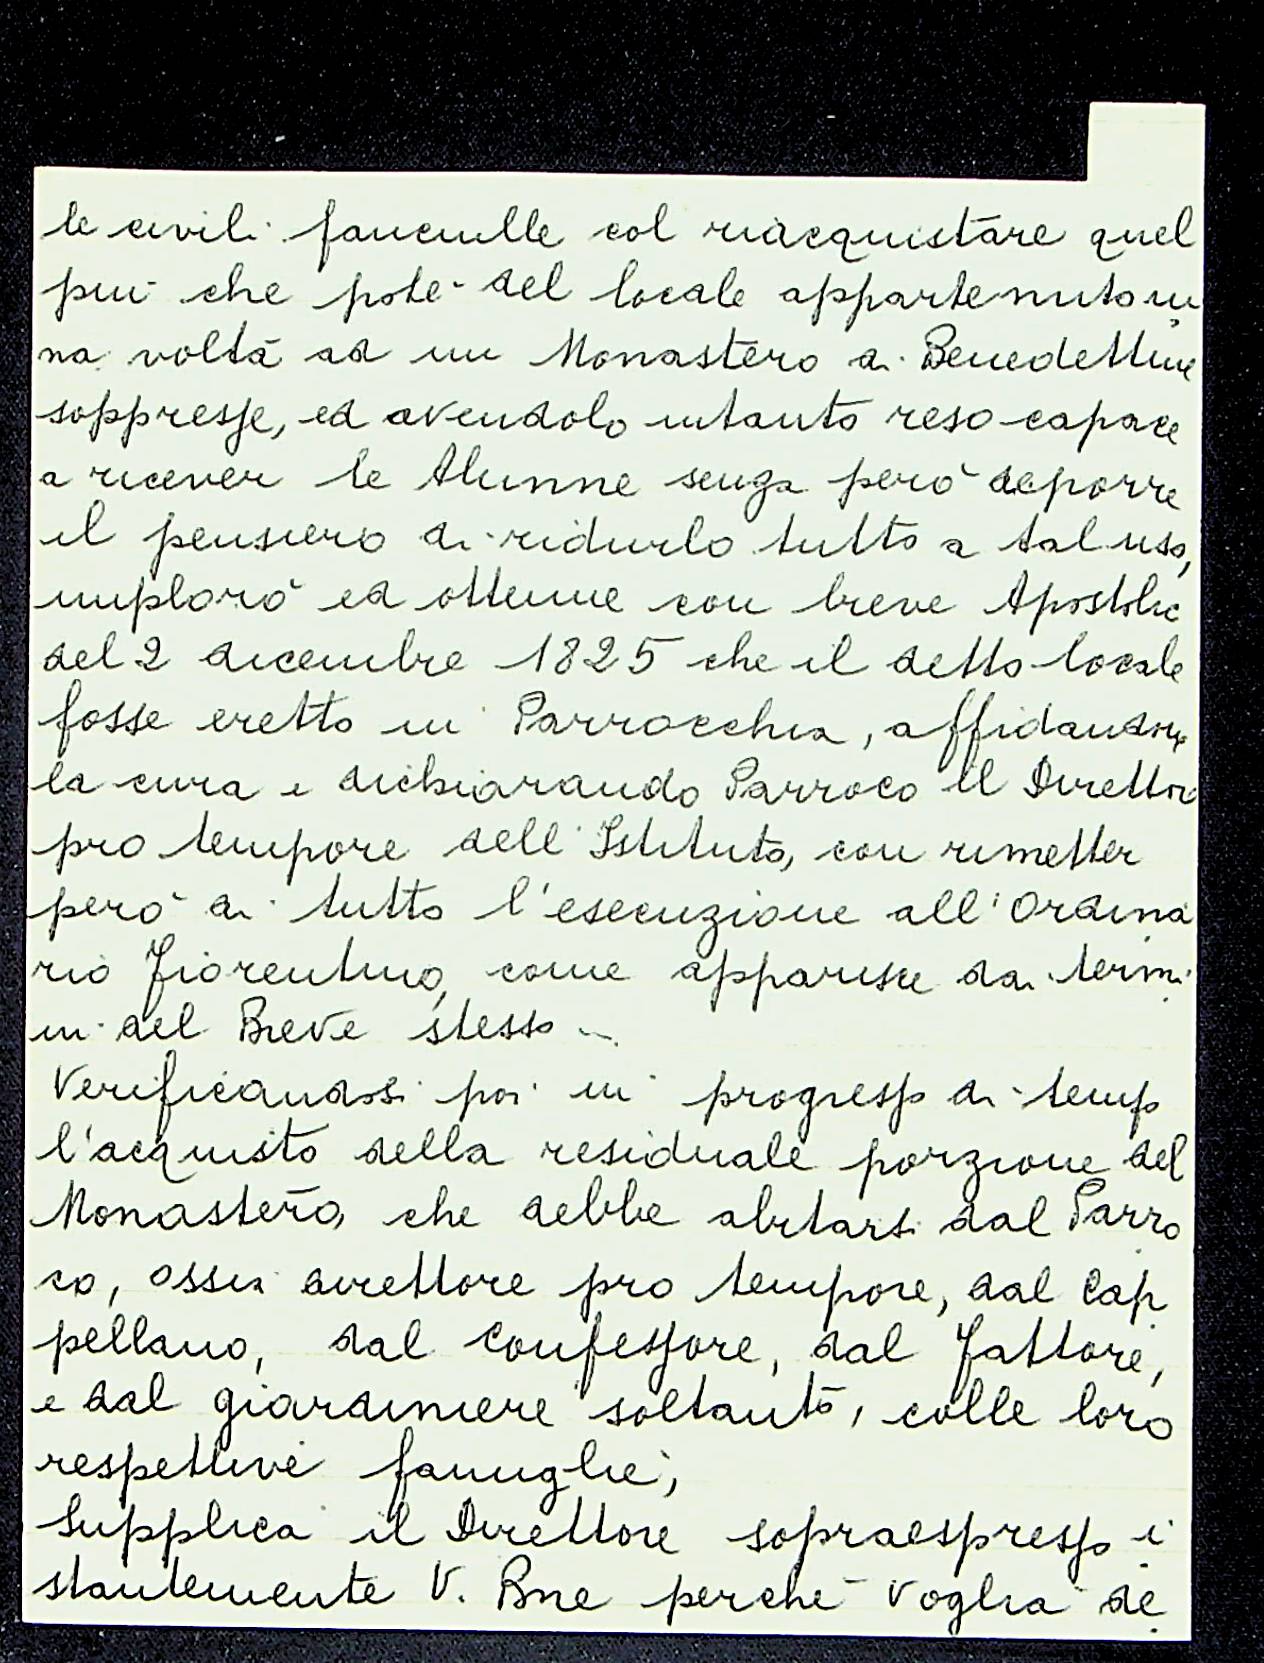 le civili fanciulle col riacquistare quel
più che potè del locale appartenuto u
na volta ad un Monastero di Benedettine
soppresse, ed avendolo intanto reso capace
a ricever le Alunne senza però deporre
il pensiero di ridurlo tutto a tal uso,
implorò ed ottenne con breve Apostolic
del 2 dicembre 1825 che il detto locale
fosse eretto in Parrocchia, affidandone
la cura e dichiarando Parroco il Direttore
pro tempore dell'Istituto, con rimetter
però di tutto l'esecuzione all'Ordina
rio Fiorentino, come apparisce dai termi
ni del Breve stesso
Verificandosi poi in progresso di tempo
l'acquisto della residuale porzione del
Monastero, che debbe abitarsi dal Parro
co, ossia direttore pro tempore, dal Cap
pellano, dal confessore, dal fattore,
e dal giardiniere soltanto, colle loro
respettive famiglie,
Supplica il Direttore sopraespresso i
stantemente V. Bne perchè voglia de